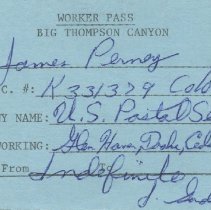 WORKER PASS
BIG THOMPSON CANYON
James Perney
C. #: K331379 Colo
NY NAME: U.S. Postal Se
WORKING: Glen Haven, Drake, Ceda
From To
Indefinite
J.